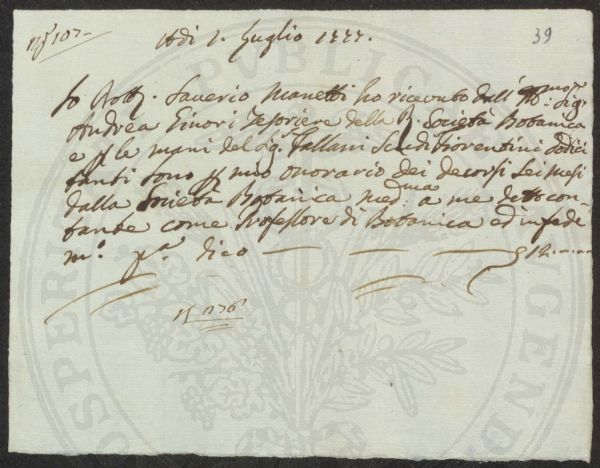 Adi 1. Luglio 1777.
39
Io Dott. Saverio Manetti ho ricevuto dall' Ill:mo Sig:
Andrea Ginori Tesoriere della R. Società Botanica
e p le mani del Sig. Tallani Scudi fiorentini dodici
tanti sono p mio onorario dei decorsi sei mesi
dalla Società Botanica med:ma a me detto con-
tante come Professore di Botanica ed in fede
m:o p:a dico — — — 12.